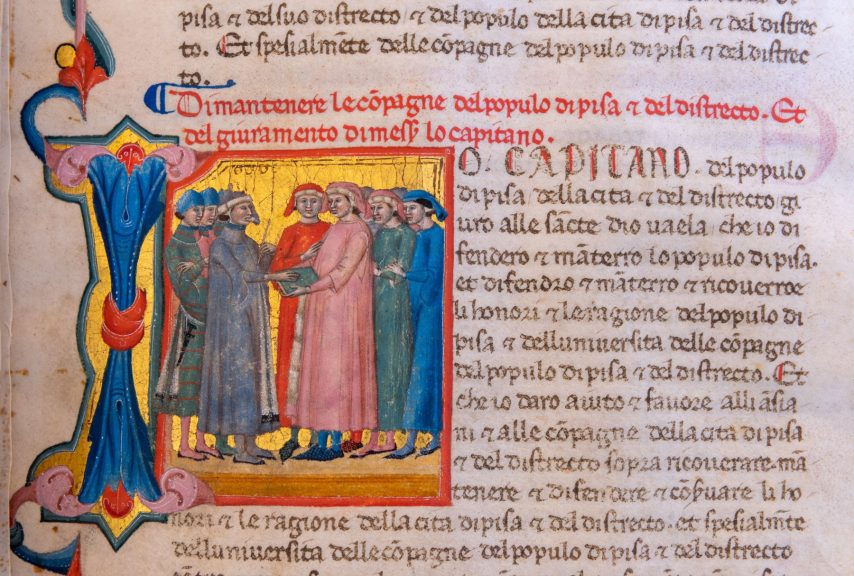 pisa ⁊ del suo distrecto ⁊ del populo della cita di pisa ⁊ del distrec
to. Et spesialm̄te delle cōpagne del populo di pisa ⁊ del distrec
to.
Di mantenere le cōpagne del populo di pisa ⁊ del distrecto. Et
del giuramento di mess̄ lo capitano.
IO. CAPITANO. del populo
di pisa della cita ⁊ del distrecto gi
uro alle sācte dio uaela che io di
fendero ⁊ māterro lo populo di pisa.
et difendro ⁊ māterro ⁊ ricouerroe
li honori ⁊ le ragione del populo di
pisa ⁊ dell uniuersita delle cōpagne
del populo di pisa ⁊ del distrecto. Et
che io daro aiuto ⁊ fauore alli āsia
ni ⁊ alle cōpagne della cita di pisa
⁊ del distrecto sopra ricouerare mā
tenere ⁊ difendere ⁊ cōs̄uare li ho
nori ⁊ le ragione della cita di pisa ⁊ del distrecto. et spesialm̄te
dell uniuersita delle cōpagne del populo di pisa ⁊ del distrecto